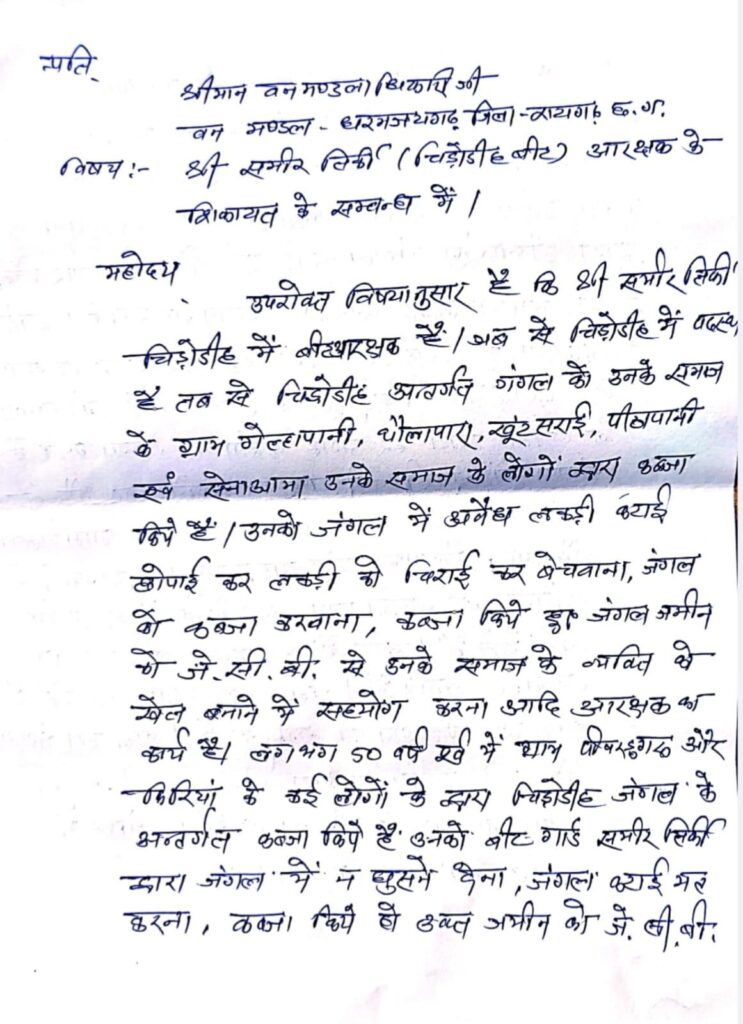 प्रति,
श्रीमान वन मण्डलाधिकारी जी
वन मण्डल - धरमजयगढ़ जिला - रायगढ़ छ.ग.
विषय :- श्री समीर तिर्की (चिड़ोडीह बीट) आरक्षक के
शिकायत के सम्बन्ध में।
महोदय,
उपरोक्त विषयानुसार है कि श्री समीर तिर्की
चिड़ोडीह में बीटआरक्षक हैं। जब से चिड़ोडीह में पदस्थ
है तब से चिड़ोडीह अन्तर्गत जंगल को उनके समाज
के ग्राम गोल्हापानी, धौलापारा, खूंटसराई, पीठापानी
एवं सेनाआमा उनके समाज के लोगों द्वारा कब्जा
किये हैं। उनको जंगल में अवैध लकड़ी कटाई
छोपाई कर लकड़ी को चिराई कर बेचवाना, जंगल
को कब्जा करवाना, कब्जा किये हुए जंगल जमीन
को जे.सी.बी. से उनके समाज के व्यक्ति को
खेत बनाने में सहयोग करना आदि आरक्षक का
कार्य है। लगभग 50 वर्ष पूर्व में ग्राम और
के कई लोगों के द्वारा चिड़ोडीह जंगल के
अन्तर्गत कब्जा किये हैं उनको बीट गार्ड समीर तिर्की
द्वारा जंगल में न घुसने देना, जंगल कटाई मत
करना, कब्जा किये हो उक्त जमीन को जे.सी.बी.